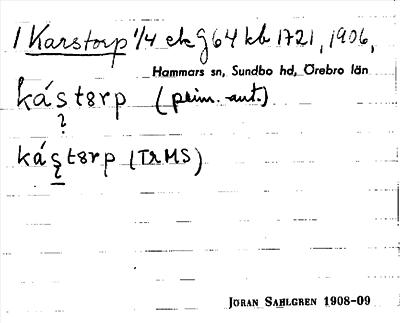 1 Karstorp 1/4 ek g 64 kb 1721, 1906,
Hammars sn, Sundbo hd, Örebro län
kás tørp (prim. ant.)
?
kás tørp (TRMS)
JÖRAN SAHLGREN 1908-09